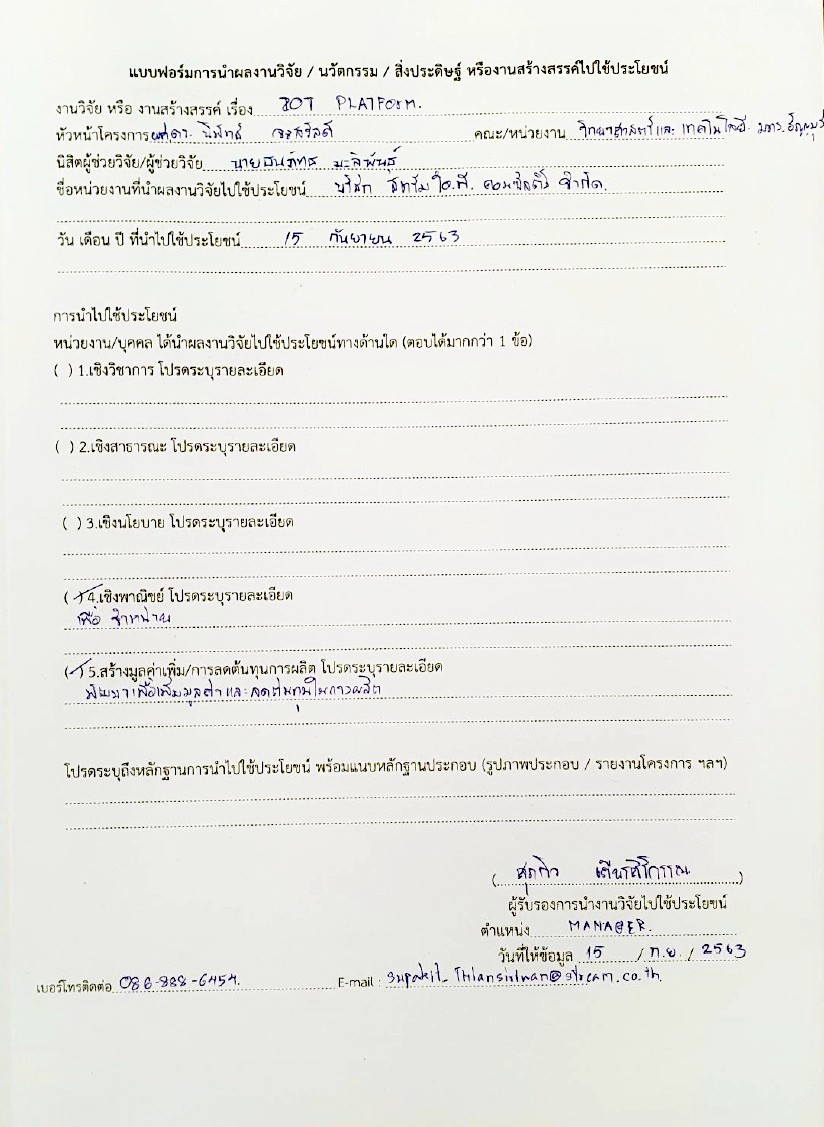 แบบฟอร์มการนำผลงานวิจัย / นวัตกรรม / สิ่งประดิษฐ์ หรืองานสร้างสรรค์ไปใช้ประโยชน์
งานวิจัย หรือ งานสร้างสรรค์ เรื่อง IOT PLATFORM.
หัวหน้าโครงการ คณะ/หน่วยงาน วิทยาศาสตร์และ เทคโนโลยี มทร. ธัญบุรี
นิสิตผู้ช่วยวิจัย/ผู้ช่วยวิจัย นาย
ชื่อหน่วยงานที่นำผลงานวิจัยไปใช้ประโยชน์ บริษัท สตรีม ไอ.ที. คอนซัลติ้ง จำกัด.
วัน เดือน ปี ที่นำไปใช้ประโยชน์ 15 กันยายน 2563
การนำไปใช้ประโยชน์
หน่วยงาน/บุคคล ได้นำผลงานวิจัยไปใช้ประโยชน์ทางด้านใด (ตอบได้มากกว่า 1 ข้อ)
( ) 1.เชิงวิชาการ โปรดระบุรายละเอียด
( ) 2.เชิงสาธารณะ โปรดระบุรายละเอียด
( ) 3.เชิงนโยบาย โปรดระบุรายละเอียด
(✓) 4.เชิงพาณิชย์ โปรดระบุรายละเอียด
เพื่อ จำหน่าย
(✓) 5.สร้างมูลค่าเพิ่ม/การลดต้นทุนการผลิต โปรดระบุรายละเอียด
พัฒนาเพื่อเพิ่มมูลค่าและลดต้นทุนในการผลิต
โปรดระบุถึงหลักฐานการนำไปใช้ประโยชน์ พร้อมแนบหลักฐานประกอบ (รูปภาพประกอบ / รายงานโครงการ ฯลฯ)
(ศุภกิจ )
ผู้รับรองการนำงานวิจัยไปใช้ประโยชน์
ตำแหน่ง MANAGER.
วันที่ให้ข้อมูล 15 / ก.ย. / 2563
เบอร์โทรติดต่อ 086-888-6454. E-mail :